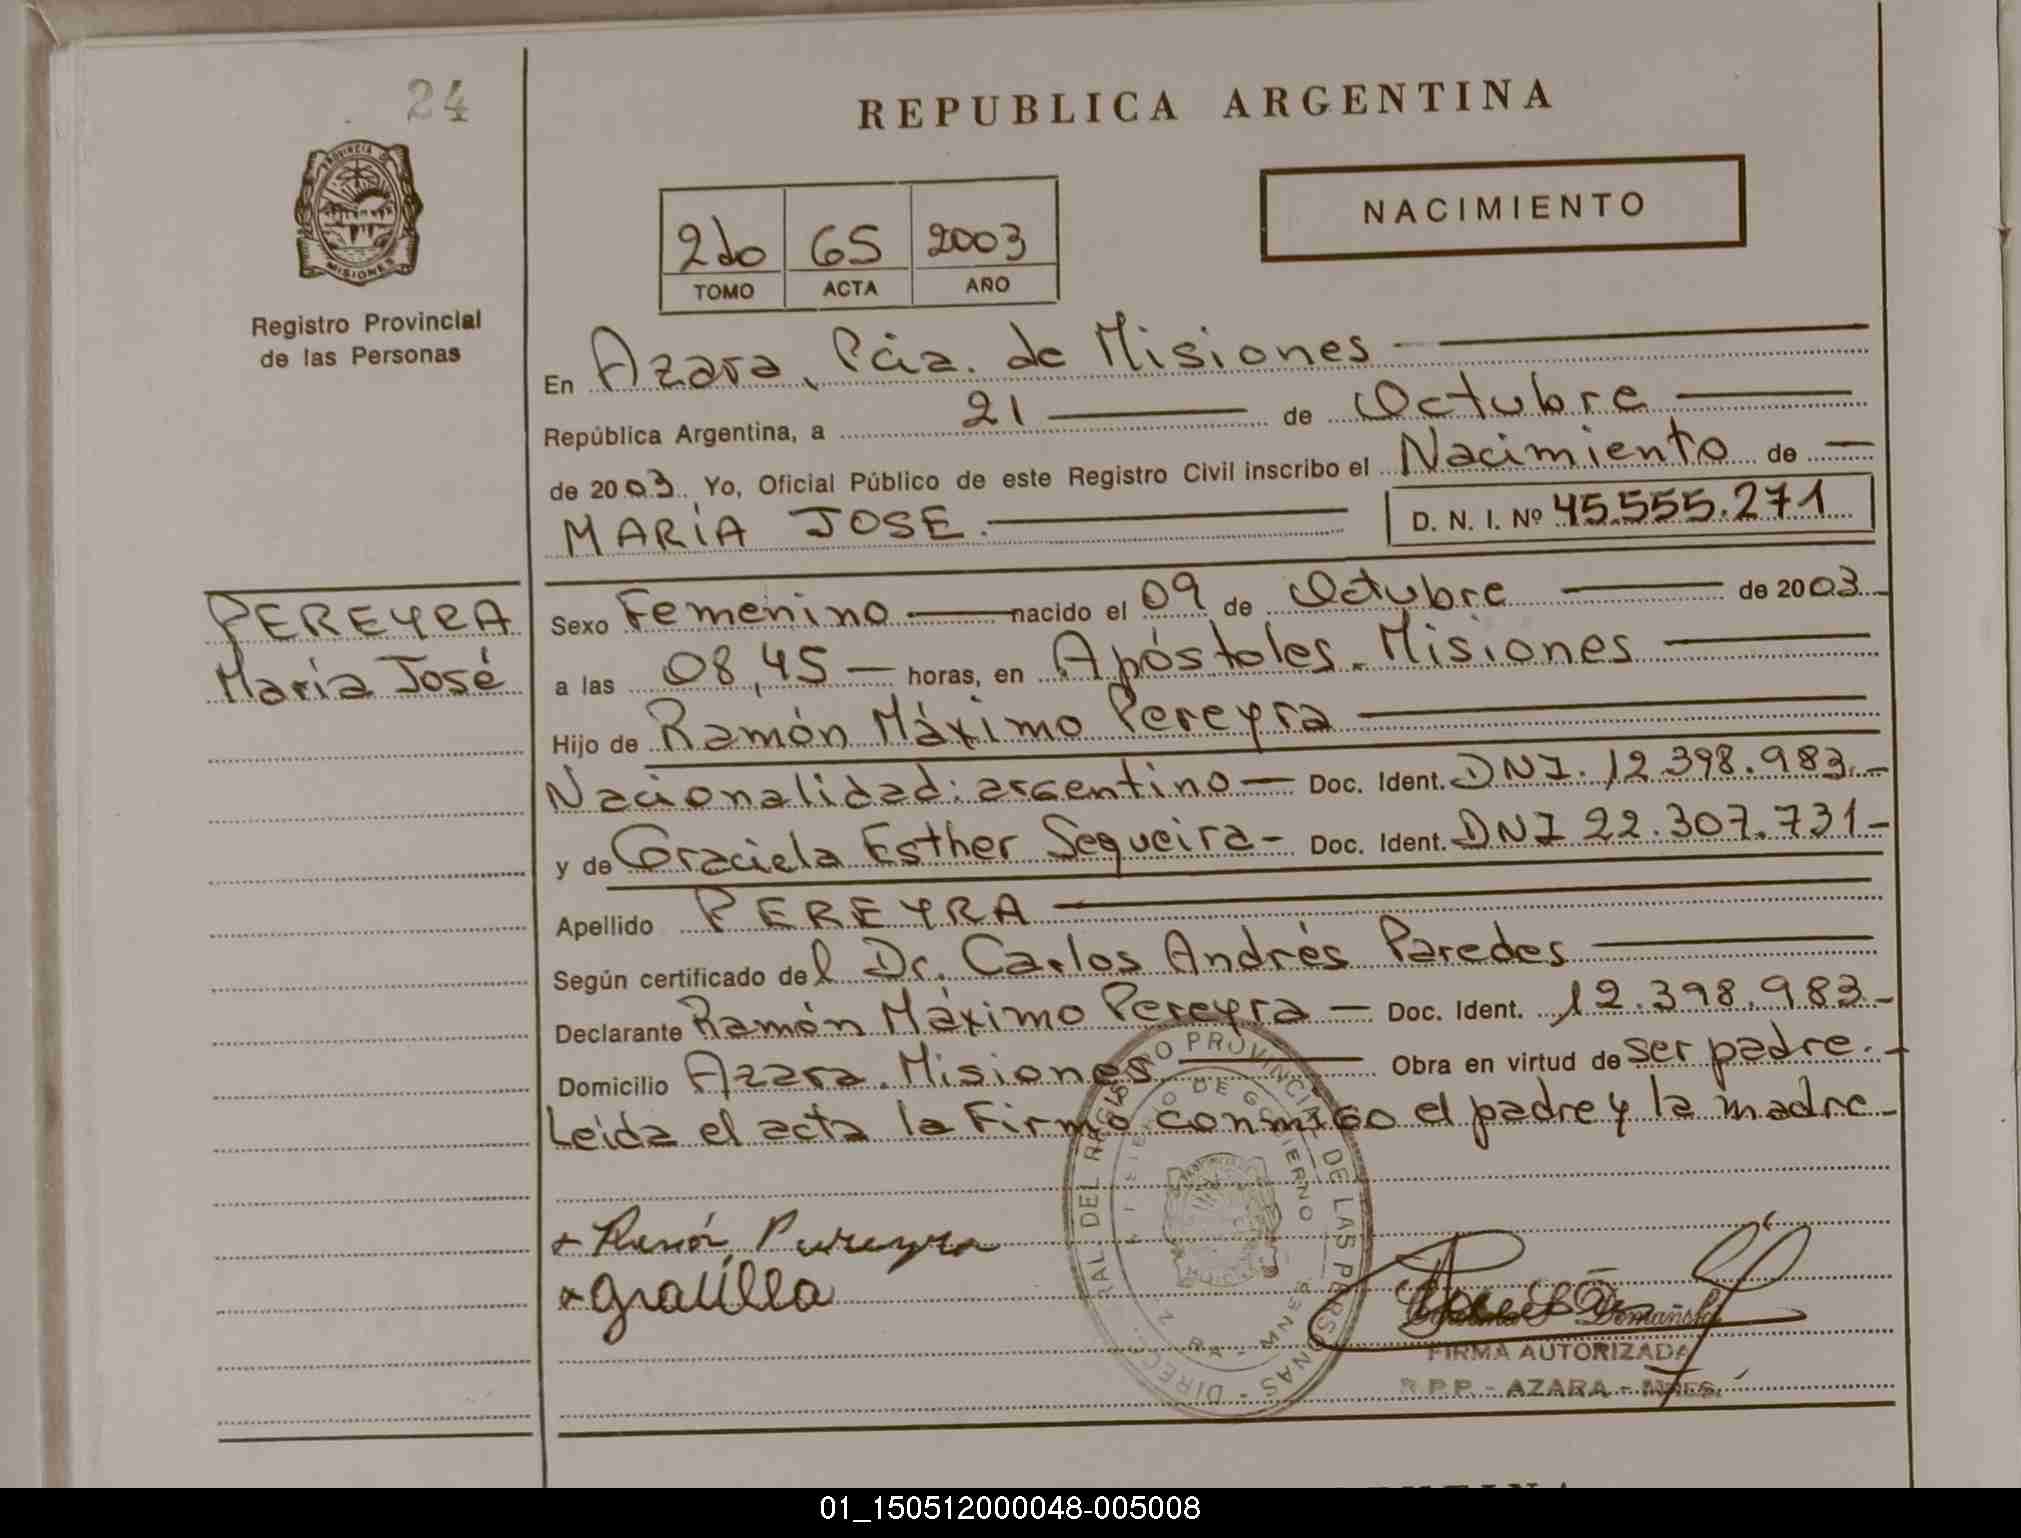 24
PROVINCIA DE
MISIONES
Registro Provincial
de las Personas
REPUBLICA ARGENTINA
NACIMIENTO
2do 65 2003
TOMO ACTA AÑO
En Azara, Pcia. de Misiones
República Argentina, a 21 de Octubre
de 2003. Yo, Oficial Público de este Registro Civil inscribo el Nacimiento de
MARÍA JOSE.
D. N. I. Nº 45.555.271
PEREYRA
María José
Sexo Femenino nacido el 09 de Octubre de 2003.-
a las 08,45 — horas, en Apóstoles. Misiones
Hijo de Ramón Máximo Pereyra
Nacionalidad: argentino — Doc. Ident. DNI. 12.398.983.-
y de Graciela Esther Sequeira - Doc. Ident. DNI 22.307.731-
Apellido PEREYRA
Según certificado del Dr. Carlos Andrés Paredes
Declarante Ramón Máximo Pereyra — Doc. Ident. 12.398.983-
Domicilio Azara. Misiones Obra en virtud de ser padre.-
Leída el acta la Firmó conmigo el padre y la madre-
DEL REGISTRO PROVINCIAL DE LAS PERSONAS - DIREC.
DE GOBIERNO
Pereyra
FIRMA AUTORIZADA
R.P.P. - AZARA - MNES.
01_150512000048-005008